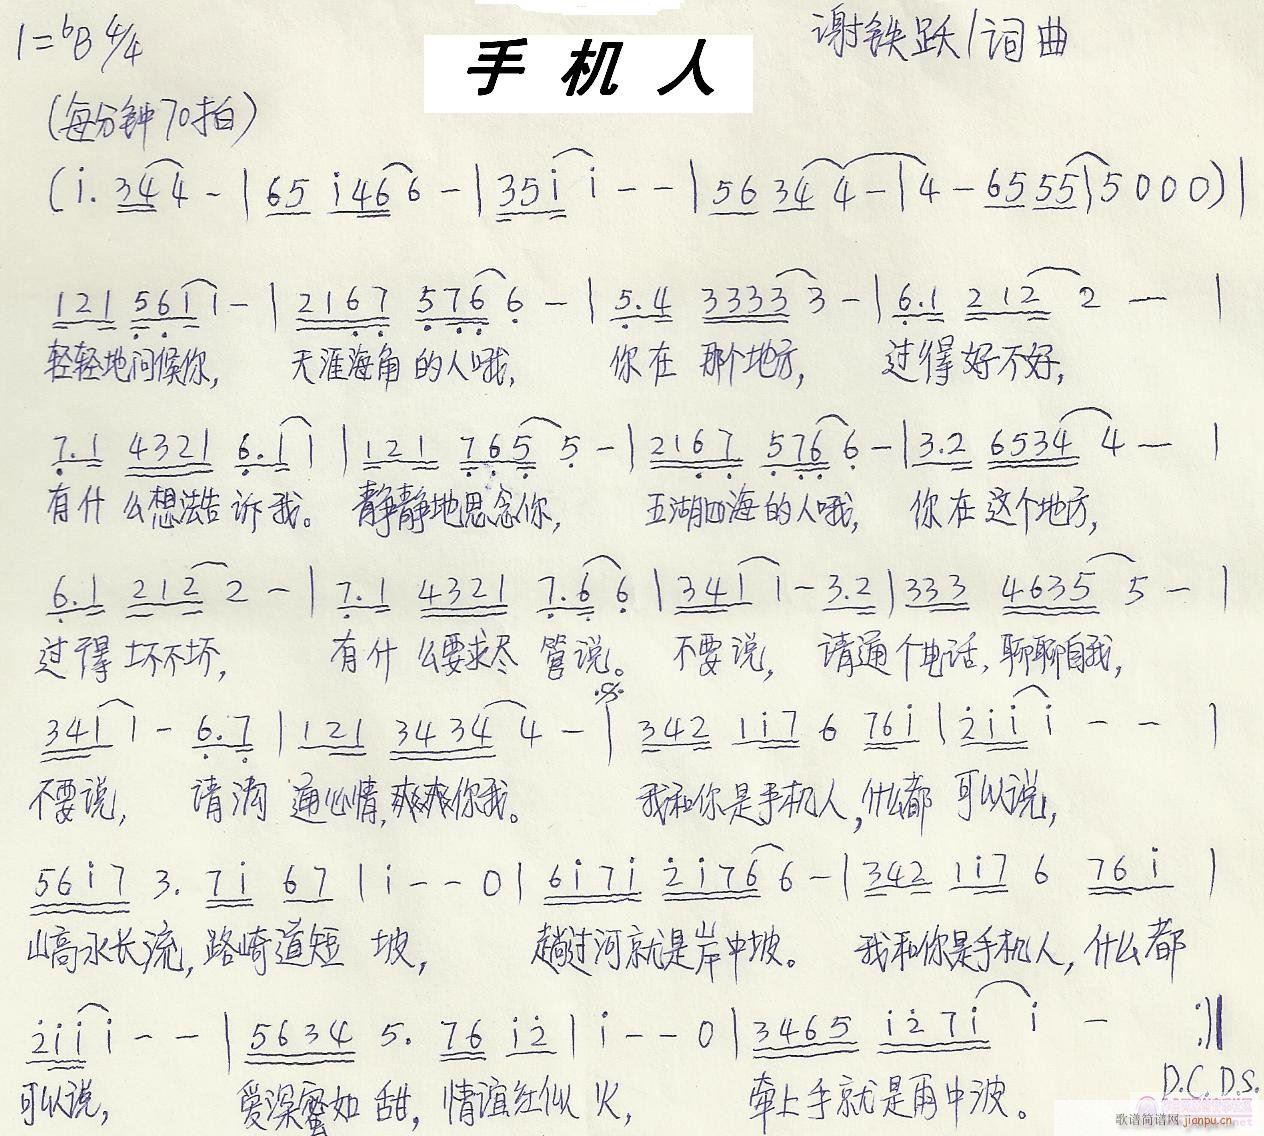 1=ᵇB 4/4
手机人
谢铁跃/词曲
(每分钟70拍)
(i. 344 - | 65 i466 - | 35i i - - | 56 344 - | 4 - 65 55 | 5 0 0 0) |
121 561 1 - | 2167 576 6 - | 5.4 3333 3 - | 6.1 212 2 - |
轻轻地问候你, 天涯海角的人哦, 你在那个地方, 过得好不好,
7.1 4321 6.1 1 | 121 765 5 - | 2167 576 6 - | 3.2 6534 4 - |
有什么想法告诉我。 静静地思念你, 五湖四海的人哦, 你在这个地方,
6.1 212 2 - | 7.1 4321 7.6 6 | 341 1 - 3.2 | 333 4635 5 - |
过得坏不坏, 有什么要求尽管说。 不要说, 请通个电话, 聊聊自我,
341 1 - 6.7 | 121 3434 4 - | 342 1i7 6 76i | 2ii i - - |
不要说, 请沟通心情,爽爽你我。 我和你是手机人,什么都可以说,
56i7 3. 7i 67 | i - - 0 | 6i7i 2i76 6 - | 342 1i7 6 76i |
山高水长流,路崎道短坡, 趟过河就是岸中坡。 我和你是手机人,什么都
2ii i - - | 5634 5. 76 i2 | i - - 0 | 3465 i27i i - :||
可以说, 爱深蜜如甜,情谊红似火, 牵上手就是雨中波。
D.C.D.S.
歌谱简谱网 jianpu.cn